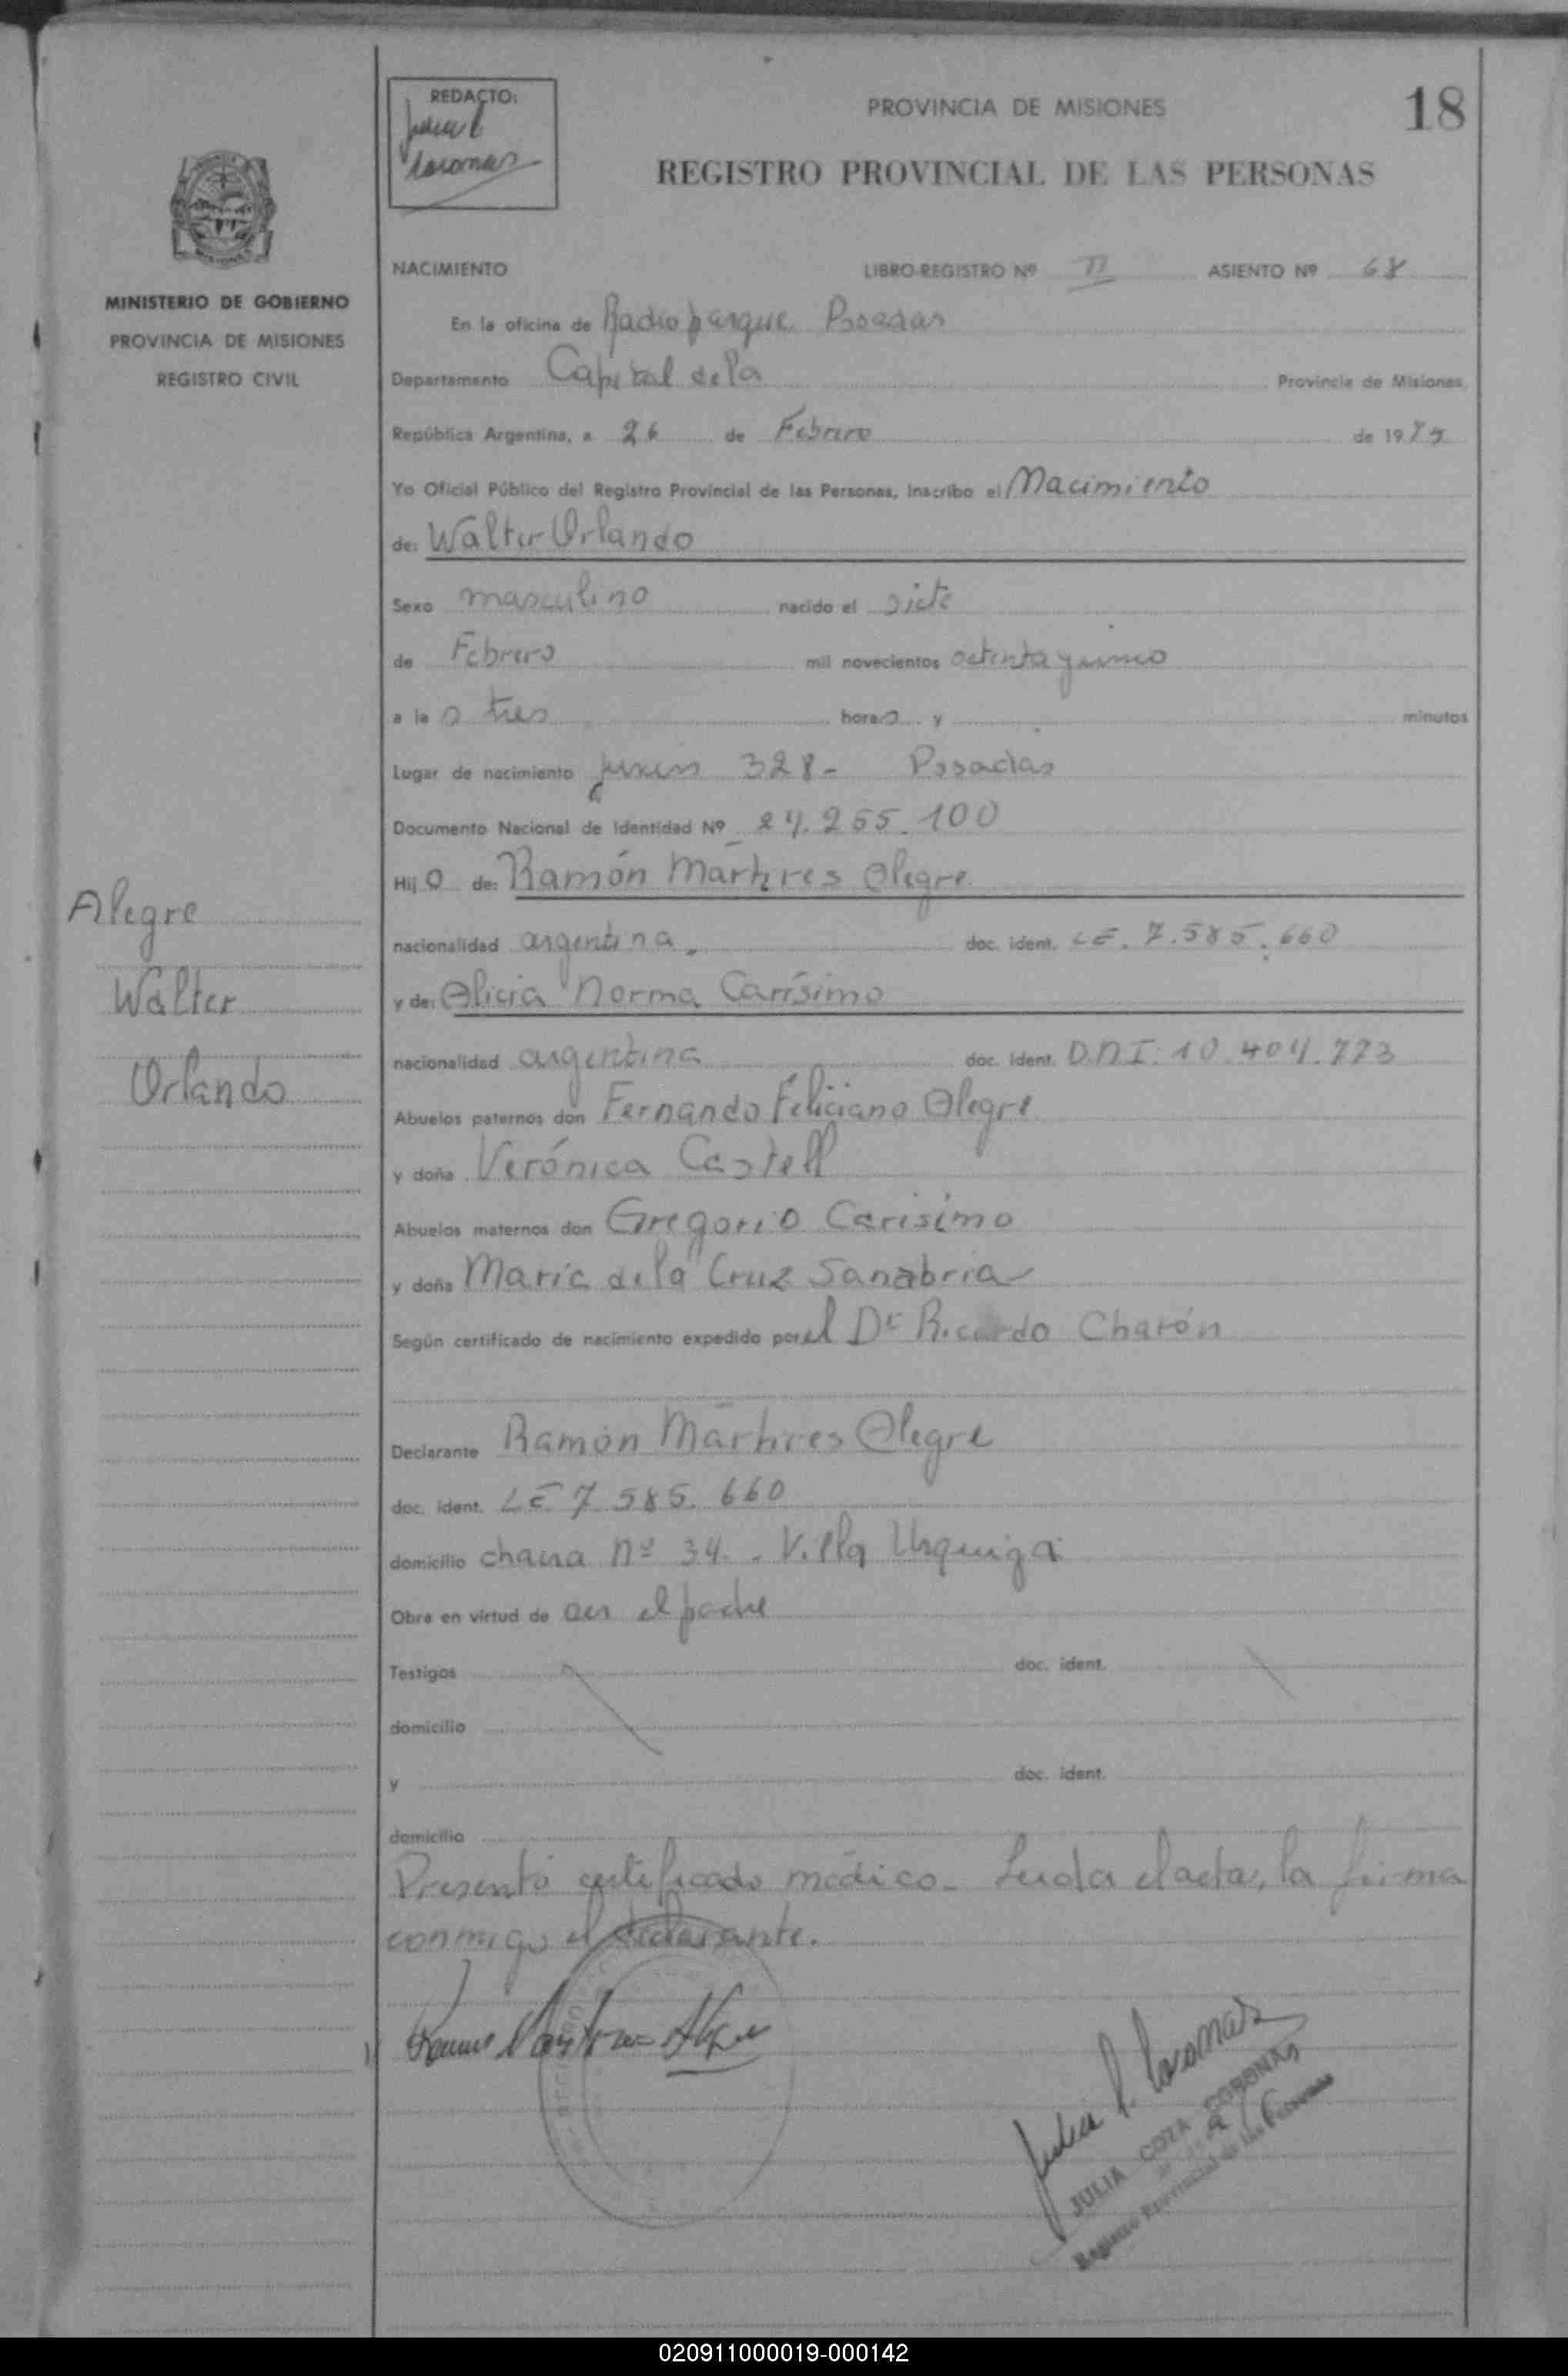 REDACTO:
Julia C
Coronas
PROVINCIA DE MISIONES
18
REGISTRO PROVINCIAL DE LAS PERSONAS
MINISTERIO DE GOBIERNO
PROVINCIA DE MISIONES
REGISTRO CIVIL
NACIMIENTO LIBRO-REGISTRO Nº II ASIENTO Nº 68
En la oficina de Radioparque Posadas
Departamento Capital de la Provincia de Misiones,
República Argentina, a 26 de Febrero de 1985
Yo Oficial Público del Registro Provincial de las Personas, inscribo el Nacimiento
de: Walter Orlando
Sexo masculino nacido el siete
de Febrero mil novecientos octenta y cinco
a la s tres horas y minutos
Lugar de nacimiento Junin 328- Posadas
Documento Nacional de Identidad Nº 24.255.100
Hij o de: Ramón Mártires Alegre
nacionalidad argentina, doc. ident. LE. 7.585.660
y de: Alicia Norma Carísimo
nacionalidad argentina doc. ident. D.N.I: 10.404.773
Abuelos paternos don Fernando Feliciano Alegre
y doña Verónica Castell
Abuelos maternos don Gregorio Carisimo
y doña María de la Cruz Sanabria
Según certificado de nacimiento expedido por el Dr Ricardo Charón
Declarante Ramón Mártires Alegre
doc. ident. LE 7.585.660
domicilio chacra nº 34. - Villa Urquiza
Obra en virtud de ser el padre
Testigos doc. ident.
domicilio
y doc. ident.
domicilio
Presentó certificado médico - Leida el acta, la firma
conmigo el declarante.
Alegre
Walter
Orlando
Ramon Martires Alegre
Julia C. Coronas
JULIA COZA CORONAS
Registro Provincial de las Personas
020911000019-000142